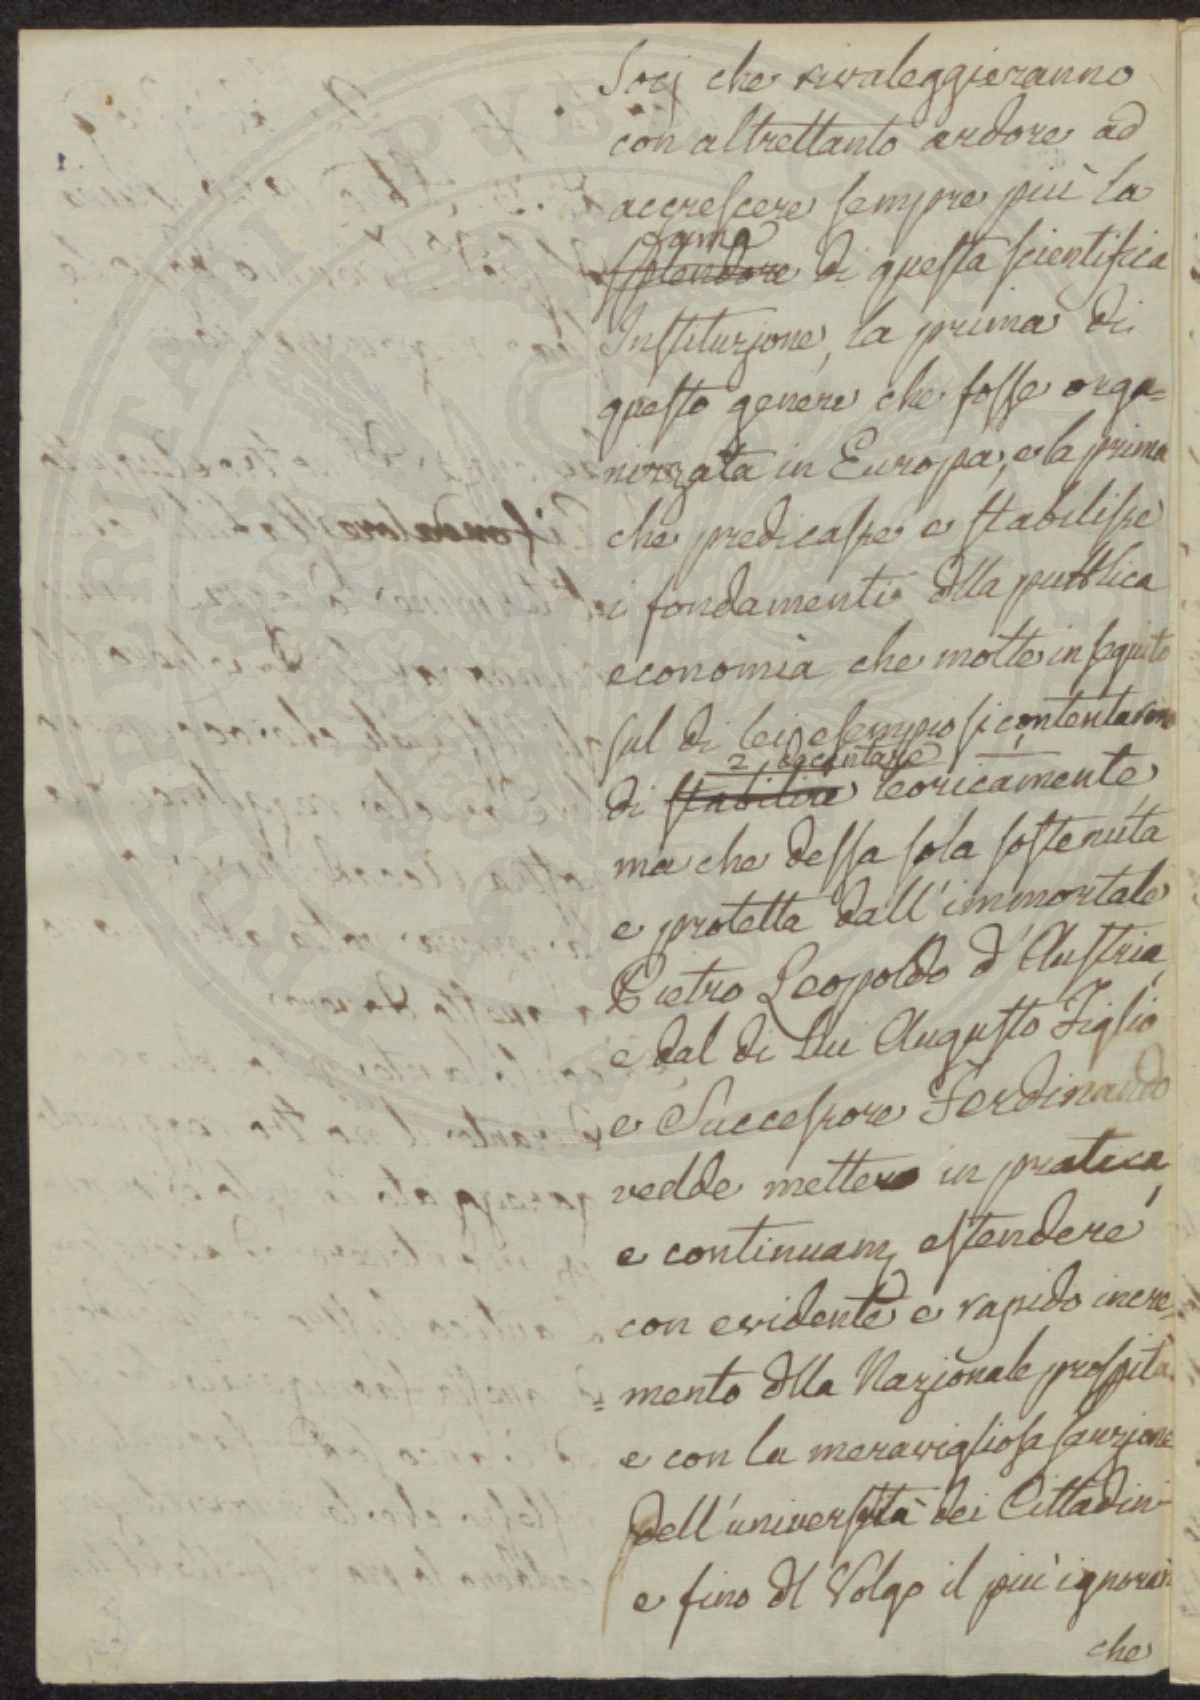 Socj che rivaleggieranno
con altrettanto ardore ad
accrescere sempre più la
fama
splendore di questa scientifica
Instituzione, la prima di
questo genere che fosse orga=
nizzata in Europa, e la prima
che predicasse e stabilisse
i fondamenti dlla pubblica
economia che molte in seguito
sul di lei esempio si contentarono
2 decantare
di stabilire teoricamente
ma che dessa sola sostenuta
e protetta dall'immortale
Pietro Leopoldo d'Austria,
e dal di Lui Augusto Figlio
e Successore Ferdinando
vedde mettere in pratica,
e continuam estendere
con evidente e rapido incre=
=mento dlla Nazionale prospità
e con la meravigliosa sanzione
dell'università dei Cittadini
e fino dl Volgo il più ignoran
che
fondatore